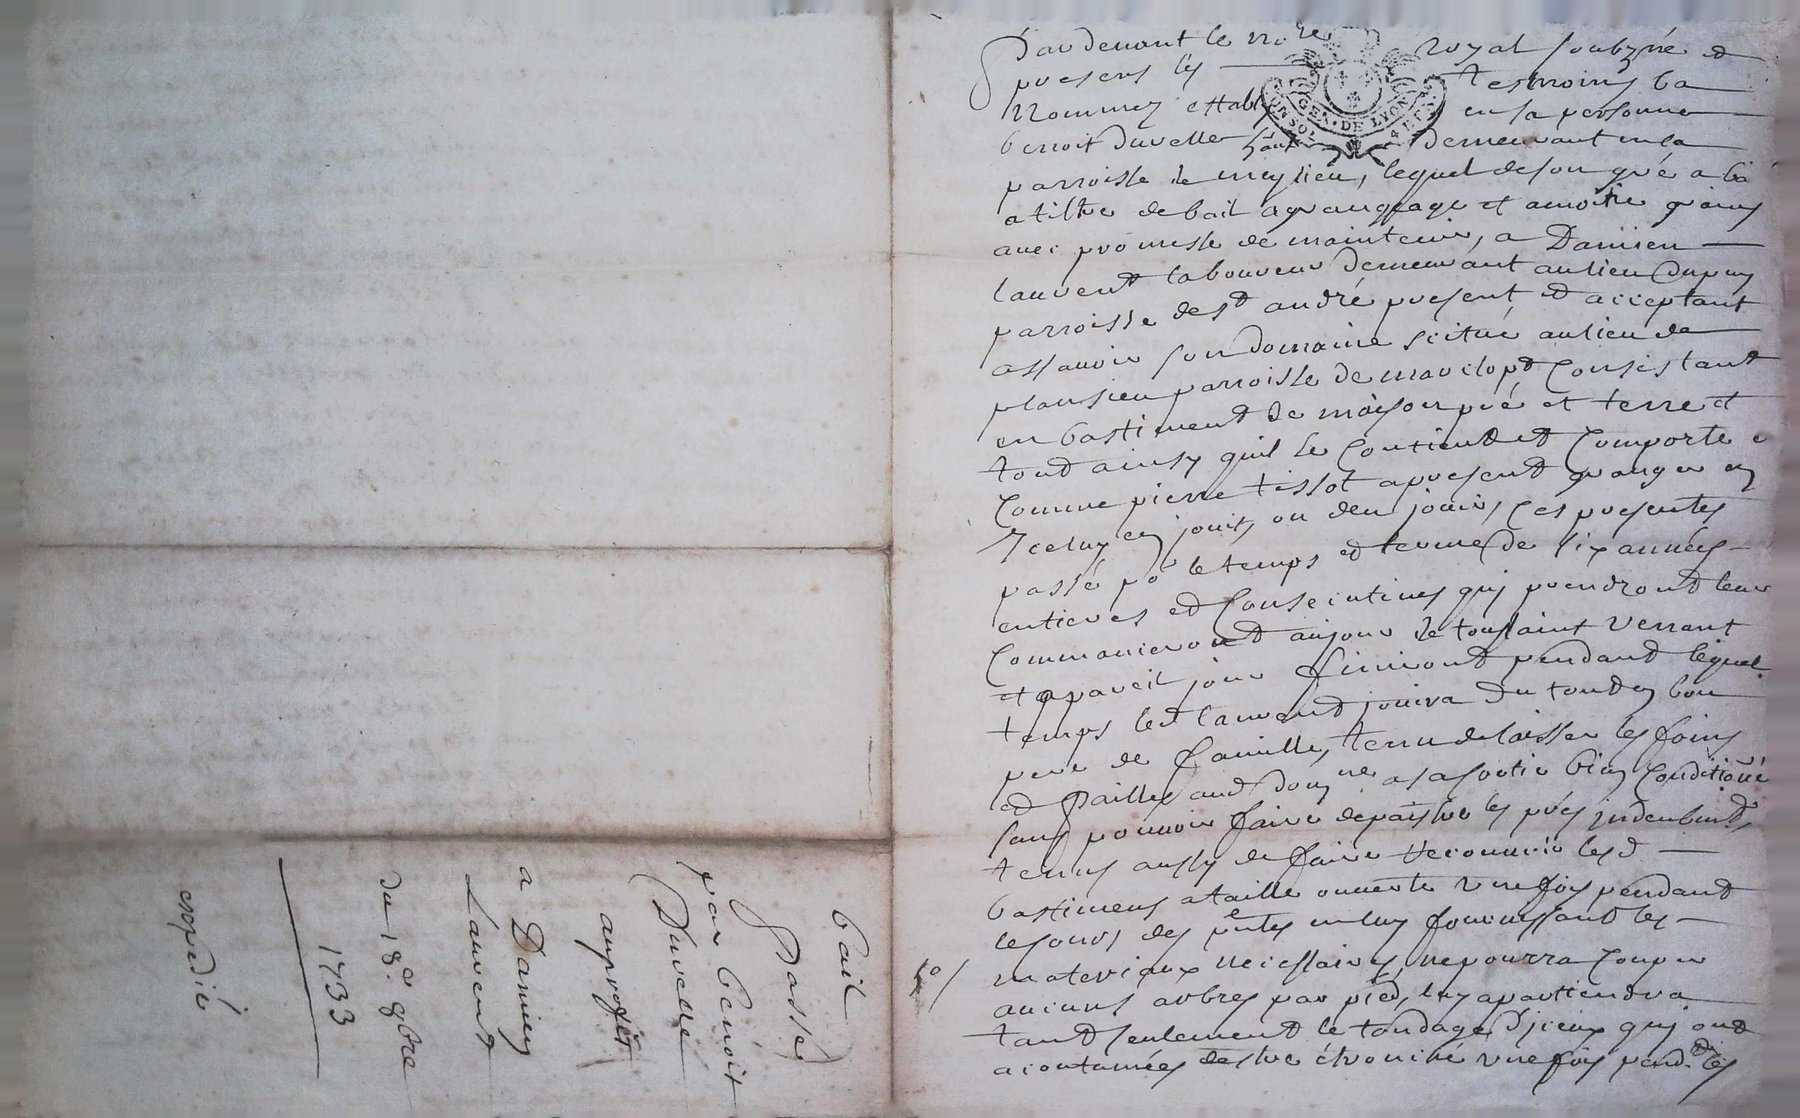 Pardevant le no.re royal soubzné et
presens les tesmoins ba
nommez establ en sa personne
benoit duvelle demeurant en la
parroisse de meylieu, lequel de son gré a ba
a tiltre de bail a grangeage et a moitie grains
avec promesse de maintenir, a Damien
laurend laboureur demeurant au lieu Dupuy
parroisse de st andré present et acceptant
assavoir son domaine scitué au lieu de
plansieu parroisse de marclopt Consistant
en bastiment de maison pré et terre et
tout ainsy quil se Contient et Comporte e
Comme pierre tissot a present granger en
Iceluy en jouit, ou deu jouir, Ces presentes
passé po.r le temps et terme de six années
entieres et Consecutives quy prendront leur
Commancement au jour de toussaint venant
et a pareil jour finiront pendant lequel
temps led laurend jouira du tout en bon
pere de famille, tenu de laisser les foins
et pailles aud dom.ne a sa sortie bien Conditioné
sans pouvoir faire depaistre les prés induement,
tenus aussy de faire recouvrir lesd
bastimens a taille ouverte une fois pendant
le cours des p.ntes en luy fournissant les
materiaux necessaires, ne pourra Couper
aucuns arbres par pied, luy apartiendra
tant seulement le tondage d'jceux quy ont
acoutumées destre ébranché une fois pend. les
bail
Passé
par benoit
Duvelle
au profit
a Damien
Laurent
du 18.e 8bre
1733
expedié
GEN. DE LYON